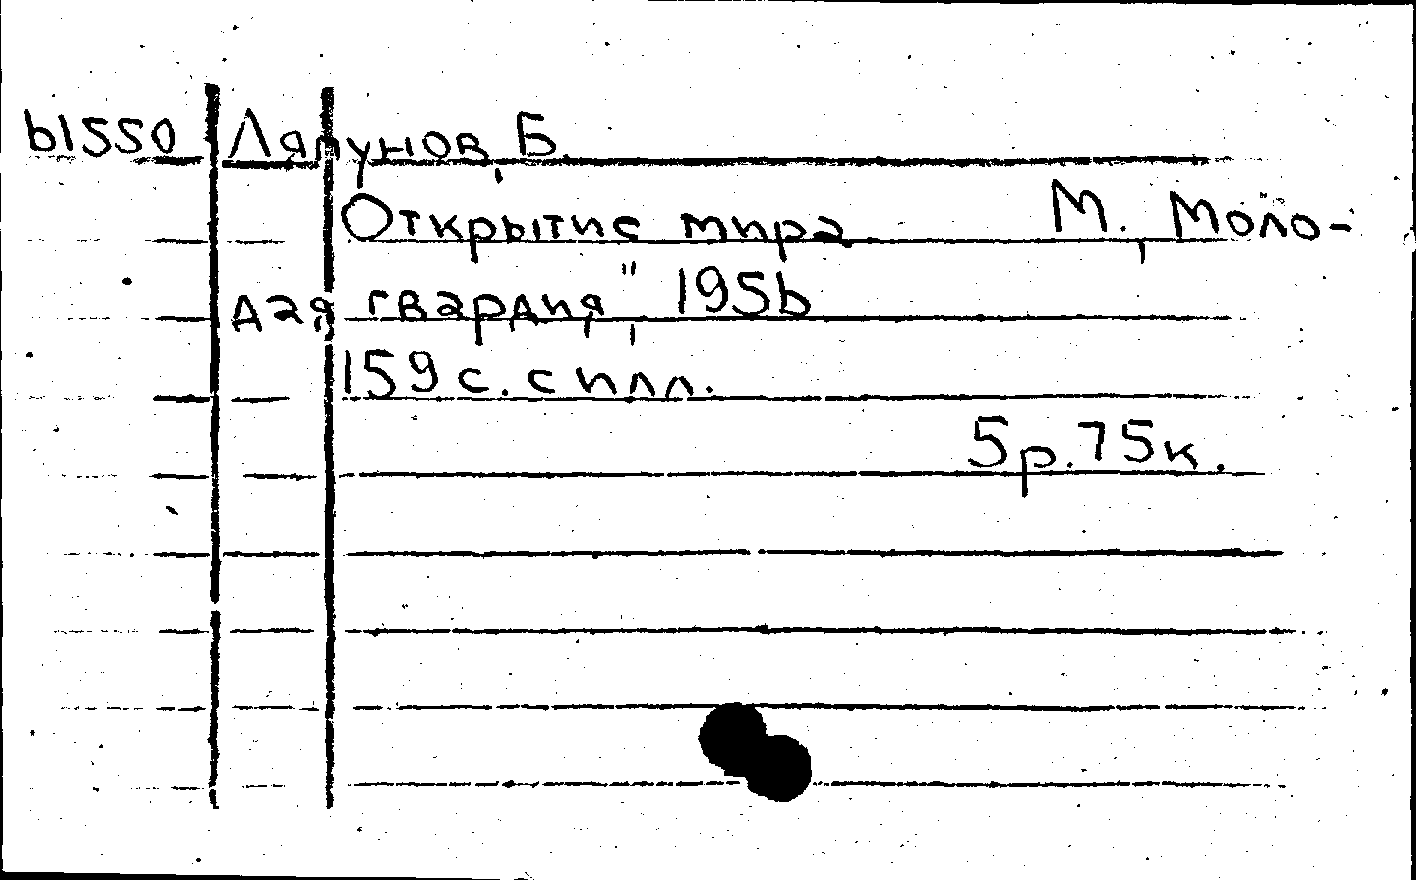 61550 Ляпунов, Б.
Открытие мира М., Моло-
дая гвардия", 1956
159 с. с илл.
5р.75к.